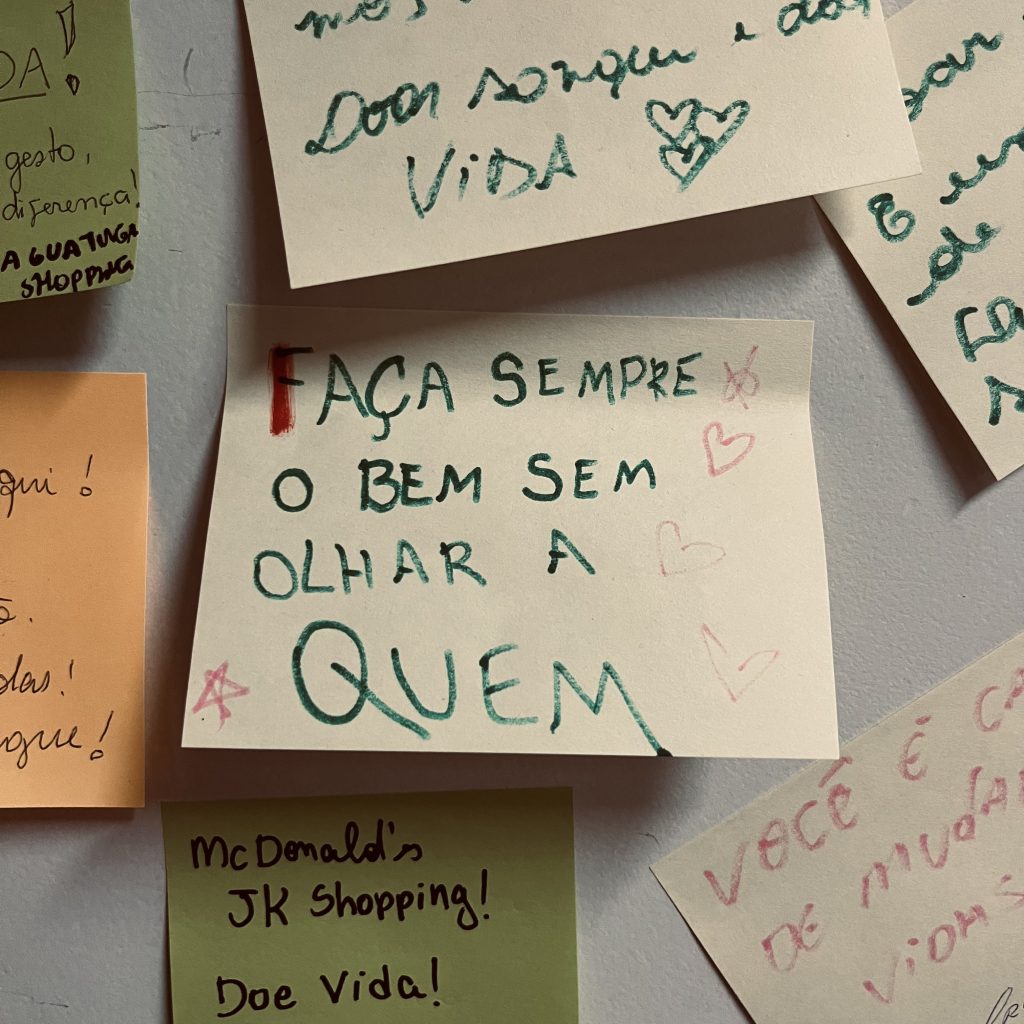 DA!
gesto,
diferença!
AGUATINGA
SHOPPING
Doar sangue e dar
VIDA
FAÇA SEMPRE
O BEM SEM
OLHAR A
QUEM
qui!
das!
gue!
McDonald's
JK Shopping!
Doe Vida!
VOCÊ É CA
DE MUDAR
VIDAS